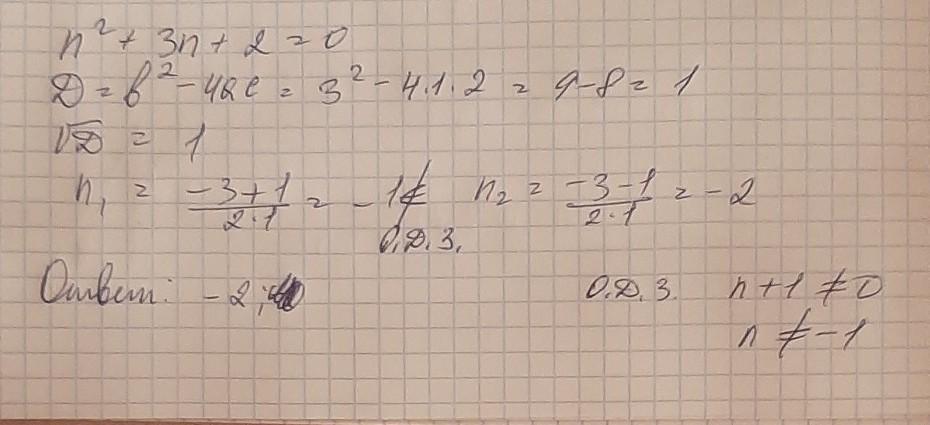 n² + 3n + 2 = 0
D = b² - 4ac = 3² - 4·1·2 = 9 - 8 = 1
√D = 1
n₁ = (-3+1)/(2·1) = -1 ∉ О.Д.З. n₂ = (-3-1)/(2·1) = -2
Ответ: -2;
О.Д.З. n + 1 ≠ 0
n ≠ -1